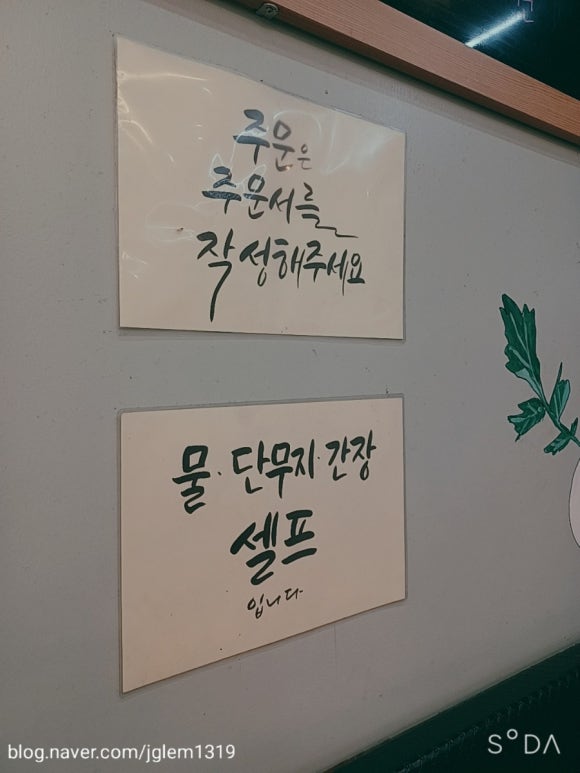 주문은
주문서를
작성해주세요
물·단무지·간장
셀프
입니다
blog.naver.com/jglem1319
SODA